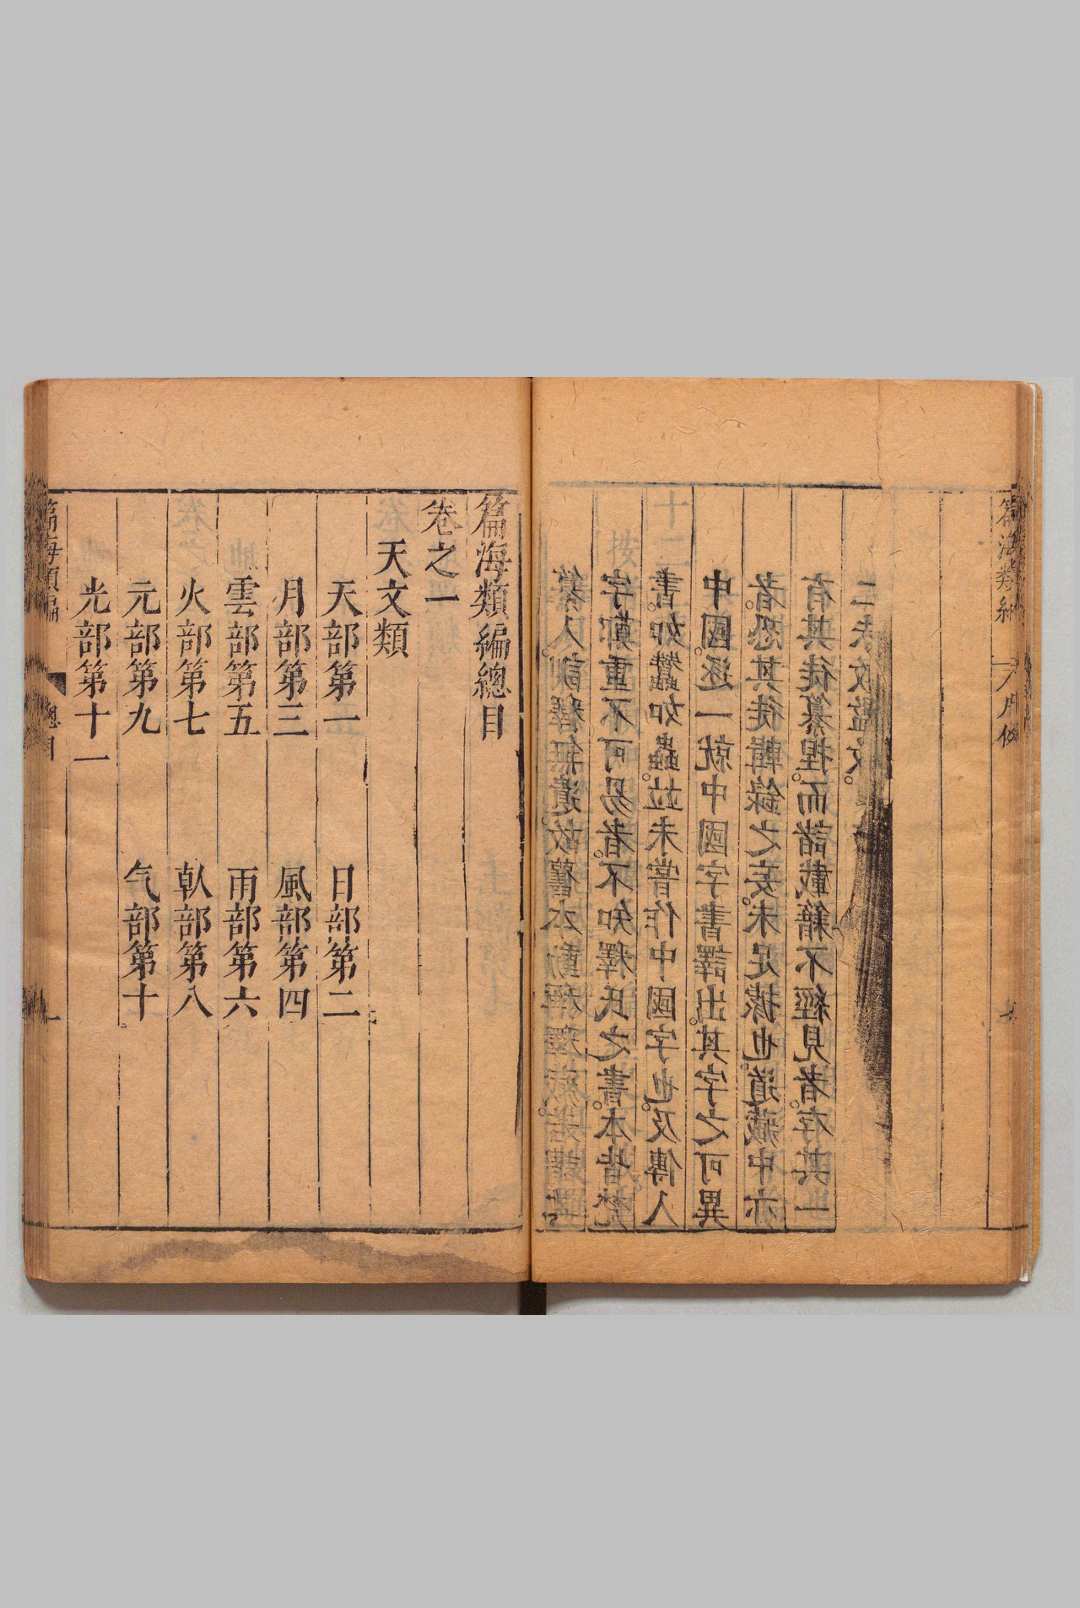 篇海類編
纂入訓釋無遺。故舊本動稱釋家
字鄭重不可易者。不知釋氏之書。本皆梵
書。如蠶如蟲。並未嘗作中國字也。及傳入
中國。逐一就中國字書譯出。其字之可異
者。恐其徒輯錄之妄。未足據也。道藏中亦
有其徒纂捏。而諸載籍不經見者。存其一
二。未敢濫收。
篇海類編總目
卷之一
天文類
天部第一 日部第二
月部第三 風部第四
雲部第五 雨部第六
火部第七 倝部第八
元部第九 气部第十
光部第十一
篇海類編 總目 一